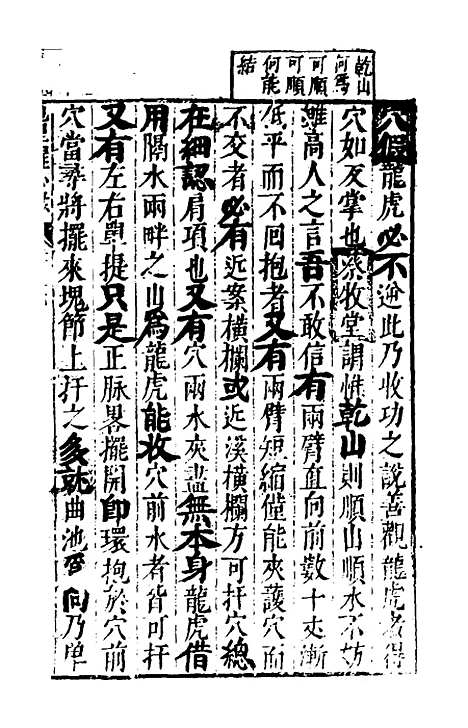 乾山
何爲
可順
可順
何能
結
穴假龍虎必不逆此乃收功之說善觀龍虎者得
穴如反掌也蔡牧堂謂惟乾山則順山順水不妨
雖高人之言吾不敢信有兩臂直向前數十丈漸
低平而不回抱者又有兩臂短縮僅能夾護穴而
不交者必有近案橫欄或近溪橫欄方可扦穴總
在細認肩項也又有穴兩水夾盡無本身龍虎借
用隔水兩畔之山爲龍虎能收穴前水者皆可扦
又有左右單提只是正脉畧擺開即環抱於穴前
穴當尋將擺來塊節上扦之多就曲池 向乃單